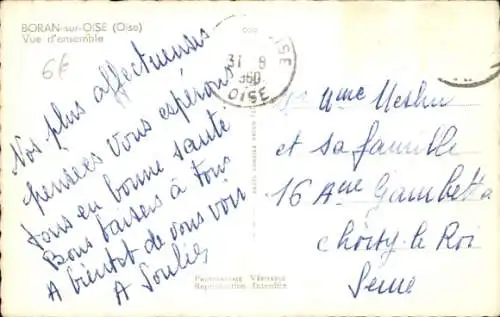 BORAN-sur-OISE (Oise)
Vue d'ensemble
6€
Nos plus affectueuses
pensées Vous espérons
tous en bonne santé
Bons baisers à tous
A bientôt de vous voir
A
OISE
31 8
1960
OISE
Mme
et sa famille
16 Ave Gambetta
Choisy-le-Roi
Seine
Photographie Véritable
Reproduction Interdite